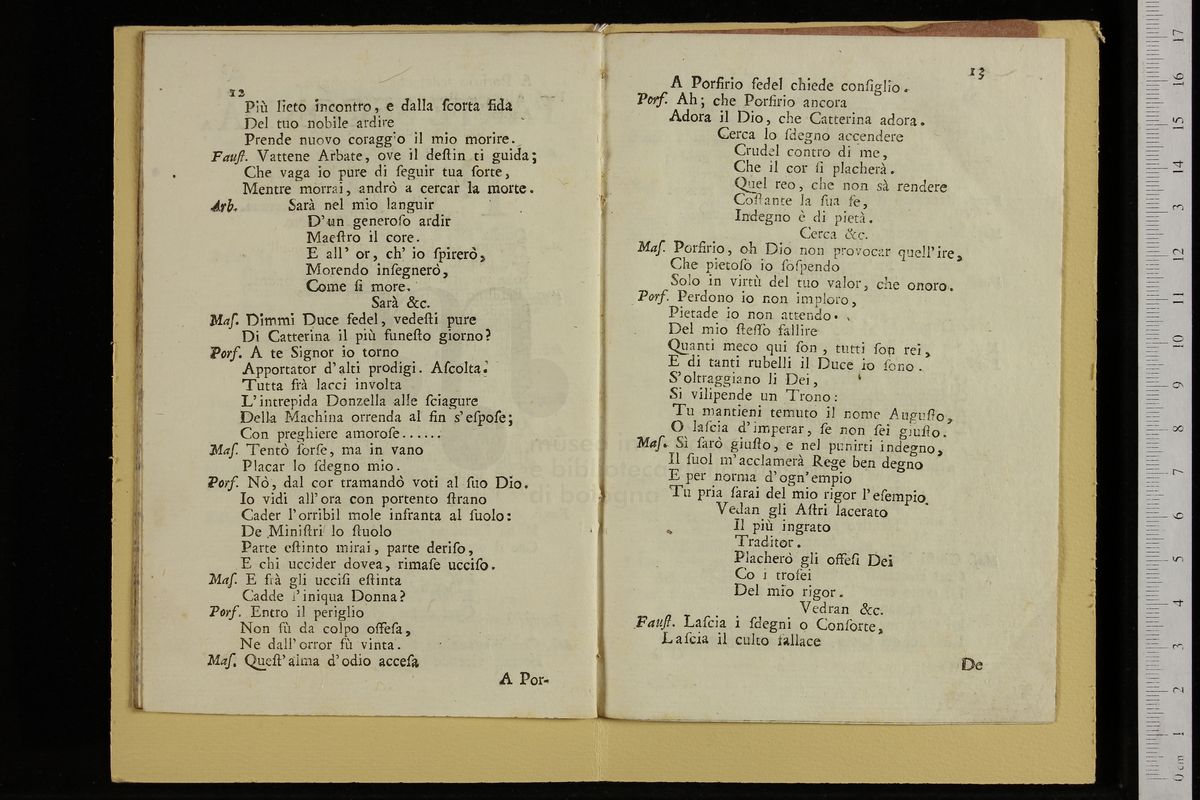 12
Più lieto incontro, e dalla ſcorta fida
Del tuo nobile ardire
Prende nuovo coraggio il mio morire.
Fauſt. Vattene Arbate, ove il deſtin ti guida;
Che vaga io pure di ſeguir tua ſorte,
Mentre morrai, andrò a cercar la morte.
Arb. Sarà nel mio languir
D'un generoſo ardir
Maeſtro il core.
E all' or, ch' io ſpirerò,
Morendo inſegnerò,
Come ſi more.
Sarà &c.
Maſ. Dimmi Duce fedel, vedeſti pure
Di Catterina il più funeſto giorno?
Porf. A te Signor io torno
Apportator d'alti prodigi. Aſcolta.
Tutta frà lacci involta
L'intrepida Donzella alle ſciagure
Della Machina orrenda al fin s'eſpoſe;
Con preghiere amoroſe......
Maſ. Tentò forſe, ma in vano
Placar lo ſdegno mio.
Porf. Nò, dal cor tramandò voti al ſuo Dio.
Io vidi all'ora con portento ſtrano
Cader l'orribil mole infranta al ſuolo:
De Miniſtri lo ſtuolo
Parte eſtinto mirai, parte deriſo,
E chi uccider dovea, rimaſe ucciſo.
Maſ. E frà gli ucciſi eſtinta
Cadde l'iniqua Donna?
Porf. Entro il periglio
Non fù da colpo offeſa,
Ne dall'orror fù vinta.
Maſ. Queſt'alma d'odio acceſa
A Por-
13
A Porfirio fedel chiede conſiglio.
Porf. Ah; che Porfirio ancora
Adora il Dio, che Catterina adora.
Cerca lo ſdegno accendere
Crudel contro di me,
Che il cor ſi placherà.
Quel reo, che non sà rendere
Coſtante la ſua fe,
Indegno è di pietà.
Cerca &c.
Maſ. Porfirio, oh Dio non provocar quell'ire,
Che pietoſo io ſoſpendo
Solo in virtù del tuo valor, che onoro.
Porf. Perdono io non imploro,
Pietade io non attendo.
Del mio ſteſſo fallire
Quanti meco qui ſon, tutti ſon rei,
E di tanti rubelli il Duce io ſono.
S'oltraggiano li Dei,
Si vilipende un Trono:
Tu mantieni temuto il nome Auguſto,
O laſcia d'imperar, ſe non ſei giuſto.
Maſ. Sì ſarò giuſto, e nel punirti indegno,
Il ſuol m'acclamerà Rege ben degno
E per norma d'ogn'empio
Tu pria ſarai del mio rigor l'eſempio.
Vedan gli Aſtri lacerato
Il più ingrato
Traditor.
Placherò gli offeſi Dei
Co i trofei
Del mio rigor.
Vedran &c.
Fauſt. Laſcia i ſdegni o Conſorte,
Laſcia il culto fallace
De